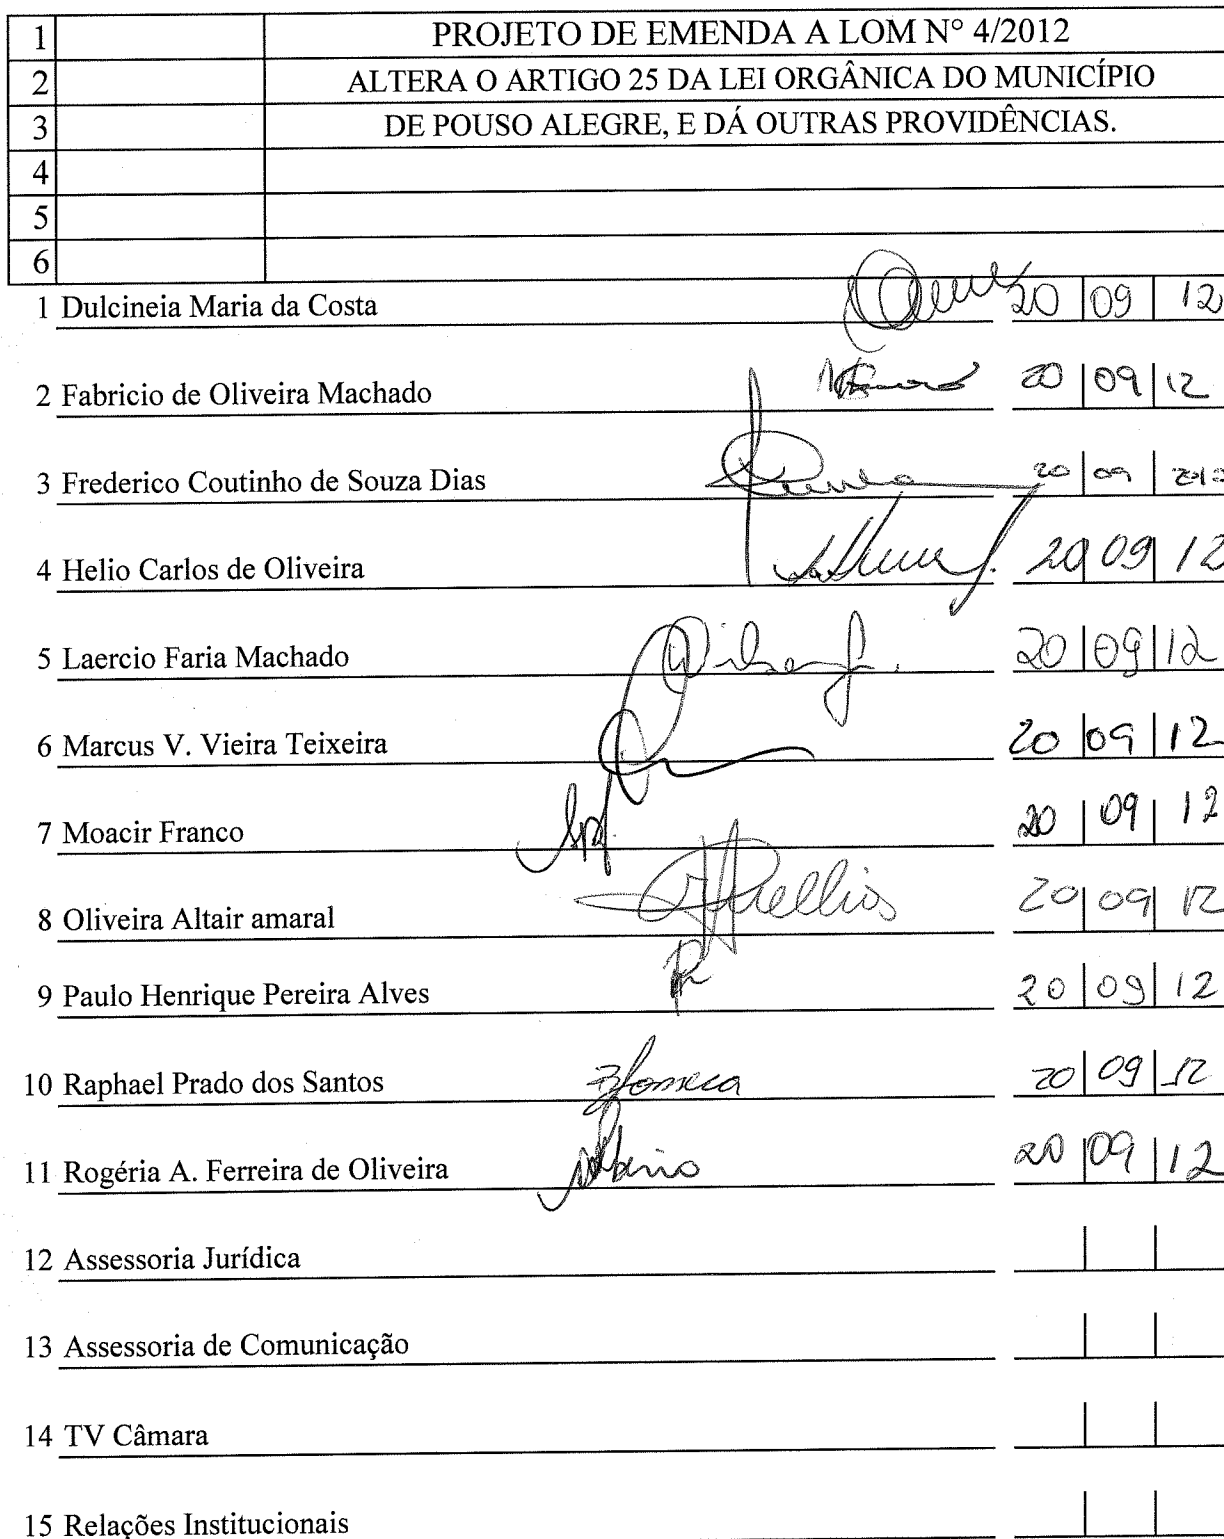 1 PROJETO DE EMENDA A LOM N° 4/2012
2 ALTERA O ARTIGO 25 DA LEI ORGÂNICA DO MUNICÍPIO
3 DE POUSO ALEGRE, E DÁ OUTRAS PROVIDÊNCIAS.
4
5
6
1 Dulcineia Maria da Costa 20 | 09 | 12
2 Fabricio de Oliveira Machado 20 | 09 | 12
3 Frederico Coutinho de Souza Dias 20 | 09 | 2012
4 Helio Carlos de Oliveira 20 | 09 | 12
5 Laercio Faria Machado 20 | 09 | 12
6 Marcus V. Vieira Teixeira 20 | 09 | 12
7 Moacir Franco 20 | 09 | 12
8 Oliveira Altair amaral 20 | 09 | 12
9 Paulo Henrique Pereira Alves 20 | 09 | 12
10 Raphael Prado dos Santos Fonseca 20 | 09 | 12
11 Rogéria A. Ferreira de Oliveira 20 | 09 | 12
12 Assessoria Jurídica
13 Assessoria de Comunicação
14 TV Câmara
15 Relações Institucionais